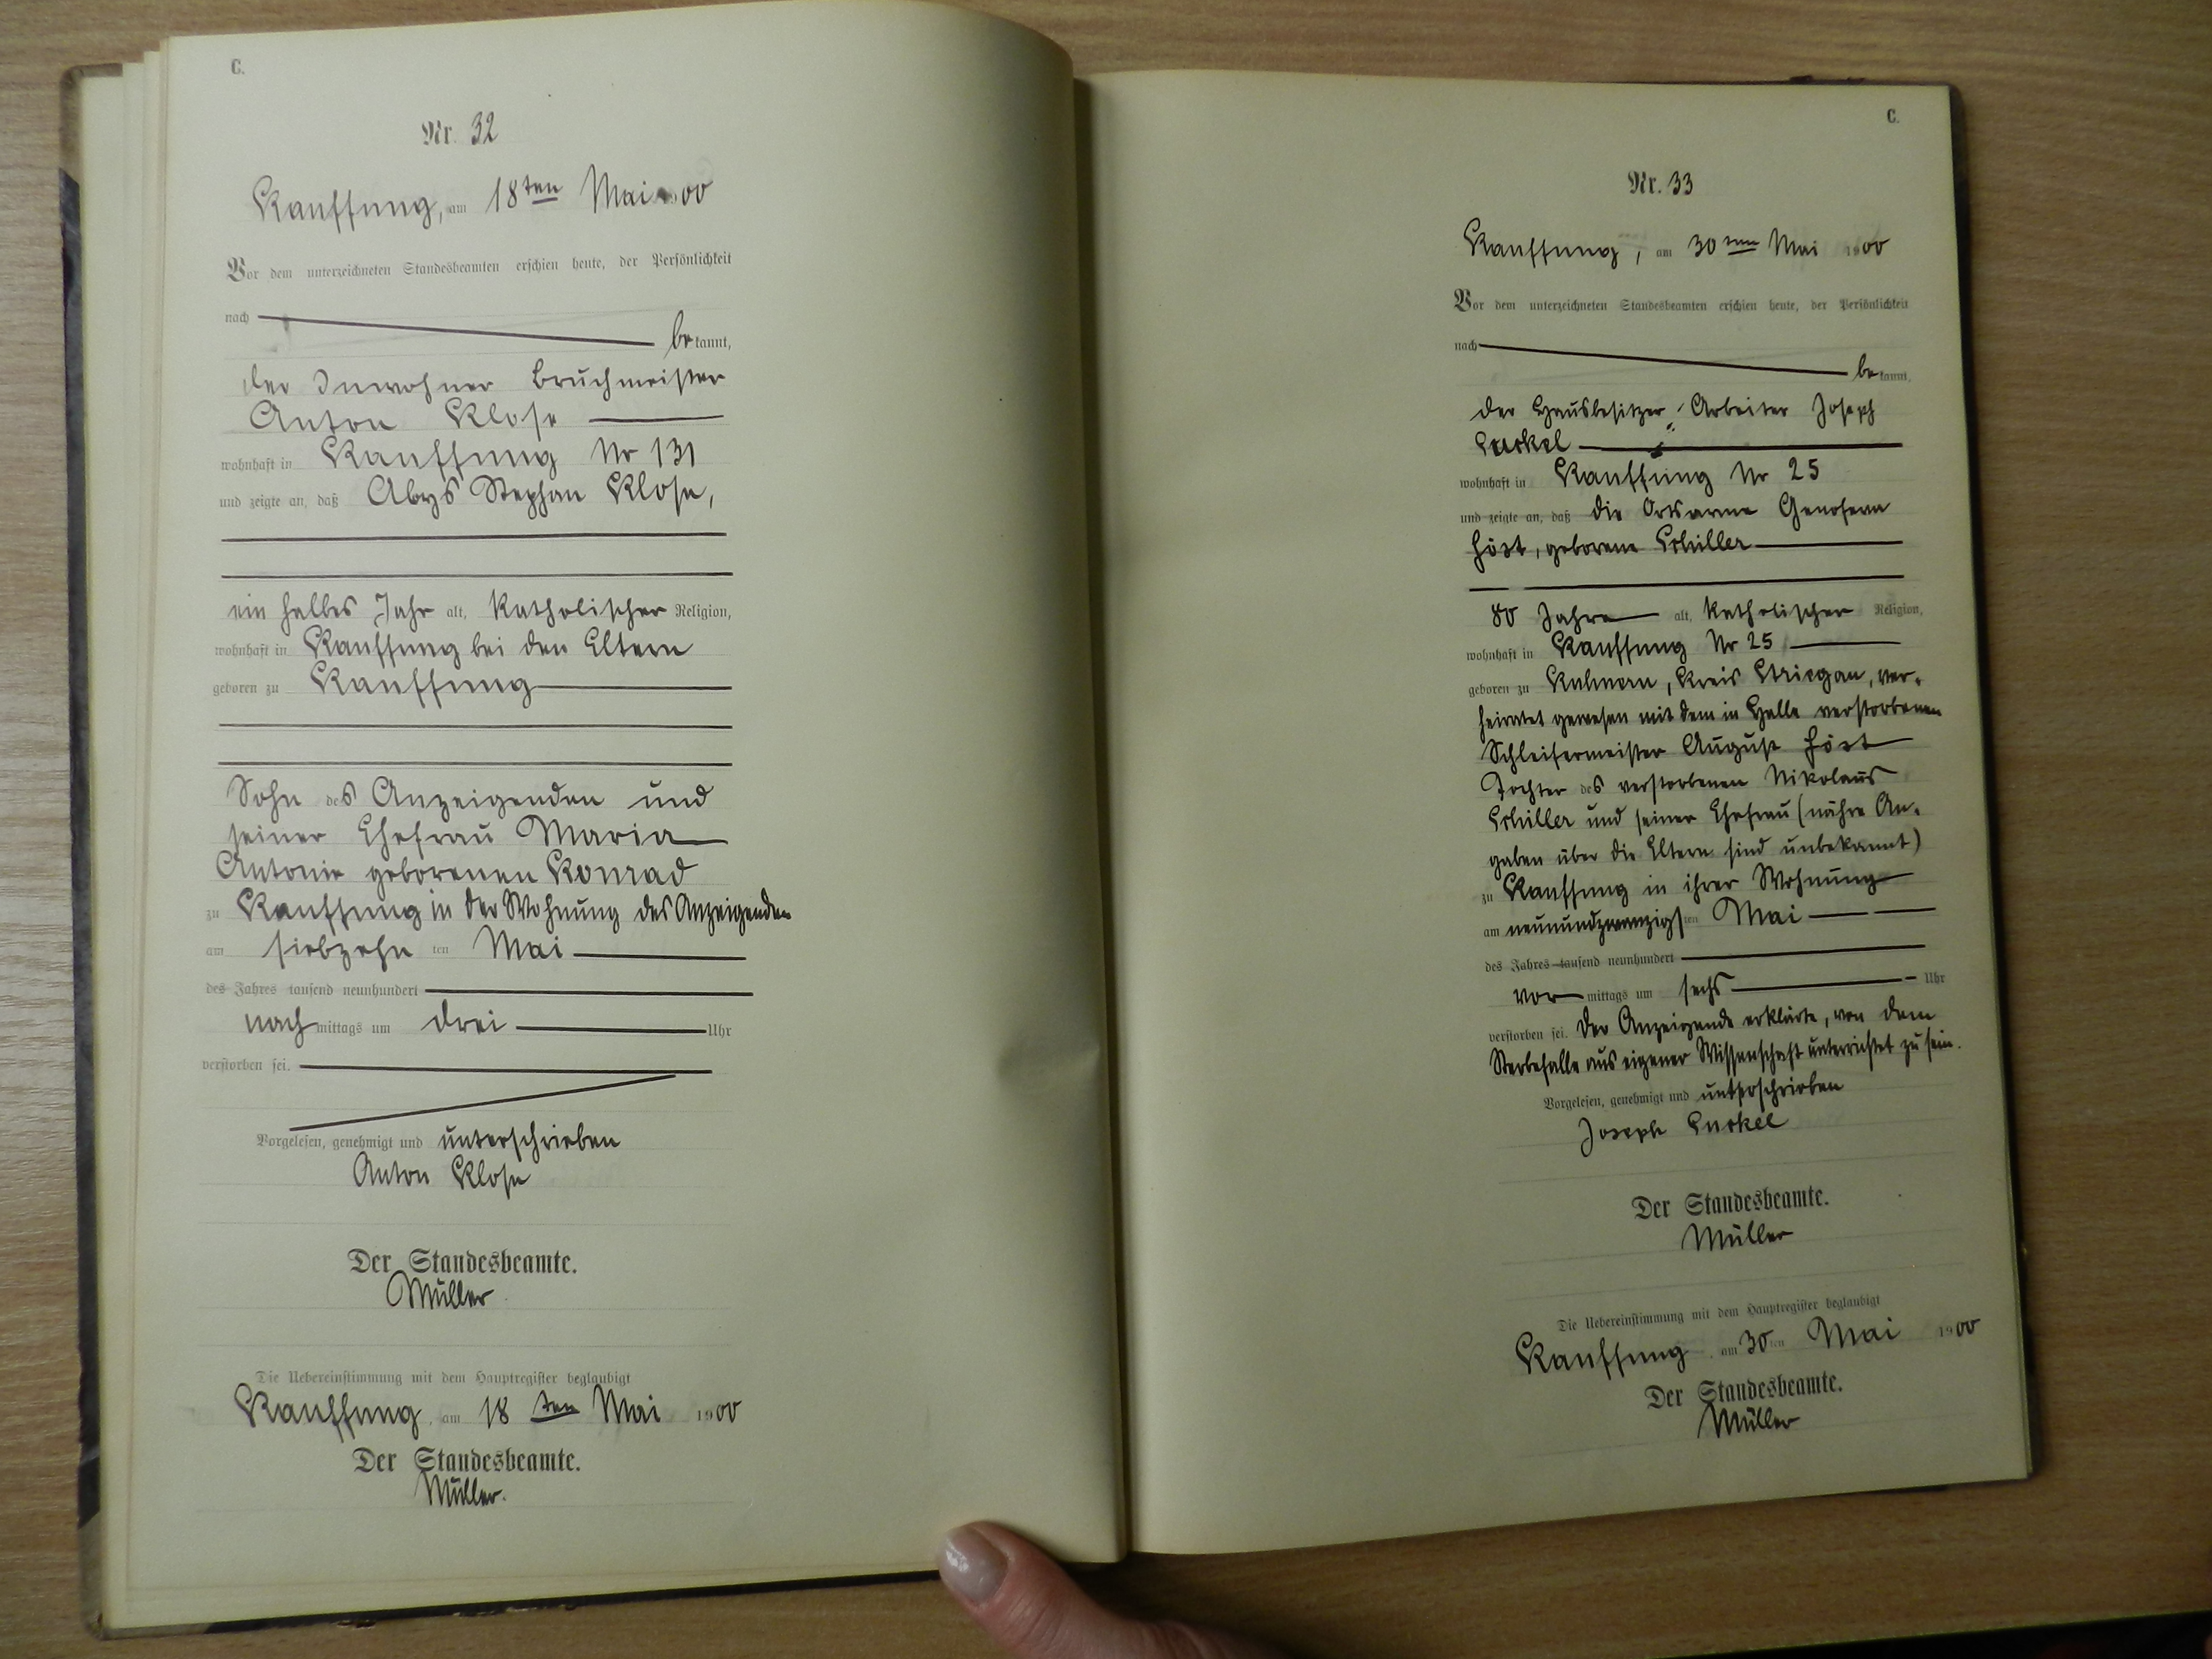 C.
Nr. 32
Kauffung, am 18ten Mai 1900
Vor dem unterzeichneten Standesbeamten erschien heute, der Persönlichkeit
nach
bekannt,
der Inwohner Bruchmeister
Anton Klose
wohnhaft in Kauffung Nr 131
und zeigte an, daß Aloys Stephan Klose,
ein halbes Jahr alt, katholischer Religion,
wohnhaft in Kauffung bei den Eltern
geboren zu Kauffung
Sohn des Anzeigenden und
seiner Ehefrau Maria
Antonie geborenen Konrad
zu Kauffung in der Wohnung des Anzeigenden
am siebzehn ten Mai
des Jahres tausend neunhundert
nachmittags um drei Uhr
verstorben sei.
Vorgelesen, genehmigt und unterschrieben
Anton Klose
Der Standesbeamte.
Müller
Die Uebereinstimmung mit dem Hauptregister beglaubigt
Kauffung, am 18 ten Mai 1900
Der Standesbeamte.
Müller.
C.
Nr. 33
Kauffung, am 30ten Mai 1900
Vor dem unterzeichneten Standesbeamten erschien heute, der Persönlichkeit
nach
bekannt,
der Hausbesitzer, Arbeiter Joseph
wohnhaft in Kauffung Nr 25
und zeigte an, daß die Ortsarme Genofeva
geborene Schiller
80 Jahre alt, katholischer Religion,
wohnhaft in Kauffung Nr 25
geboren zu Kuhnern, Kreis Striegau, ver-
heiratet gewesen mit dem in Halle verstorbenen
Schleifermeister August
Tochter des verstorbenen Nikolaus
Schiller und seiner Ehefrau (nähre An-
gaben über die Eltern sind unbekannt)
zu Kauffung in ihrer Wohnung
am neunundzwanzigsten Mai
des Jahres tausend neunhundert
vormittags um sechs Uhr
verstorben sei. Der Anzeigende erklärte, von dem
Sterbefalle aus eigener Wissenschaft unterrichtet zu sein.
Vorgelesen, genehmigt und unterschrieben
Joseph
Der Standesbeamte.
Müller
Die Uebereinstimmung mit dem Hauptregister beglaubigt
Kauffung am 30ten Mai 1900
Der Standesbeamte.
Müller